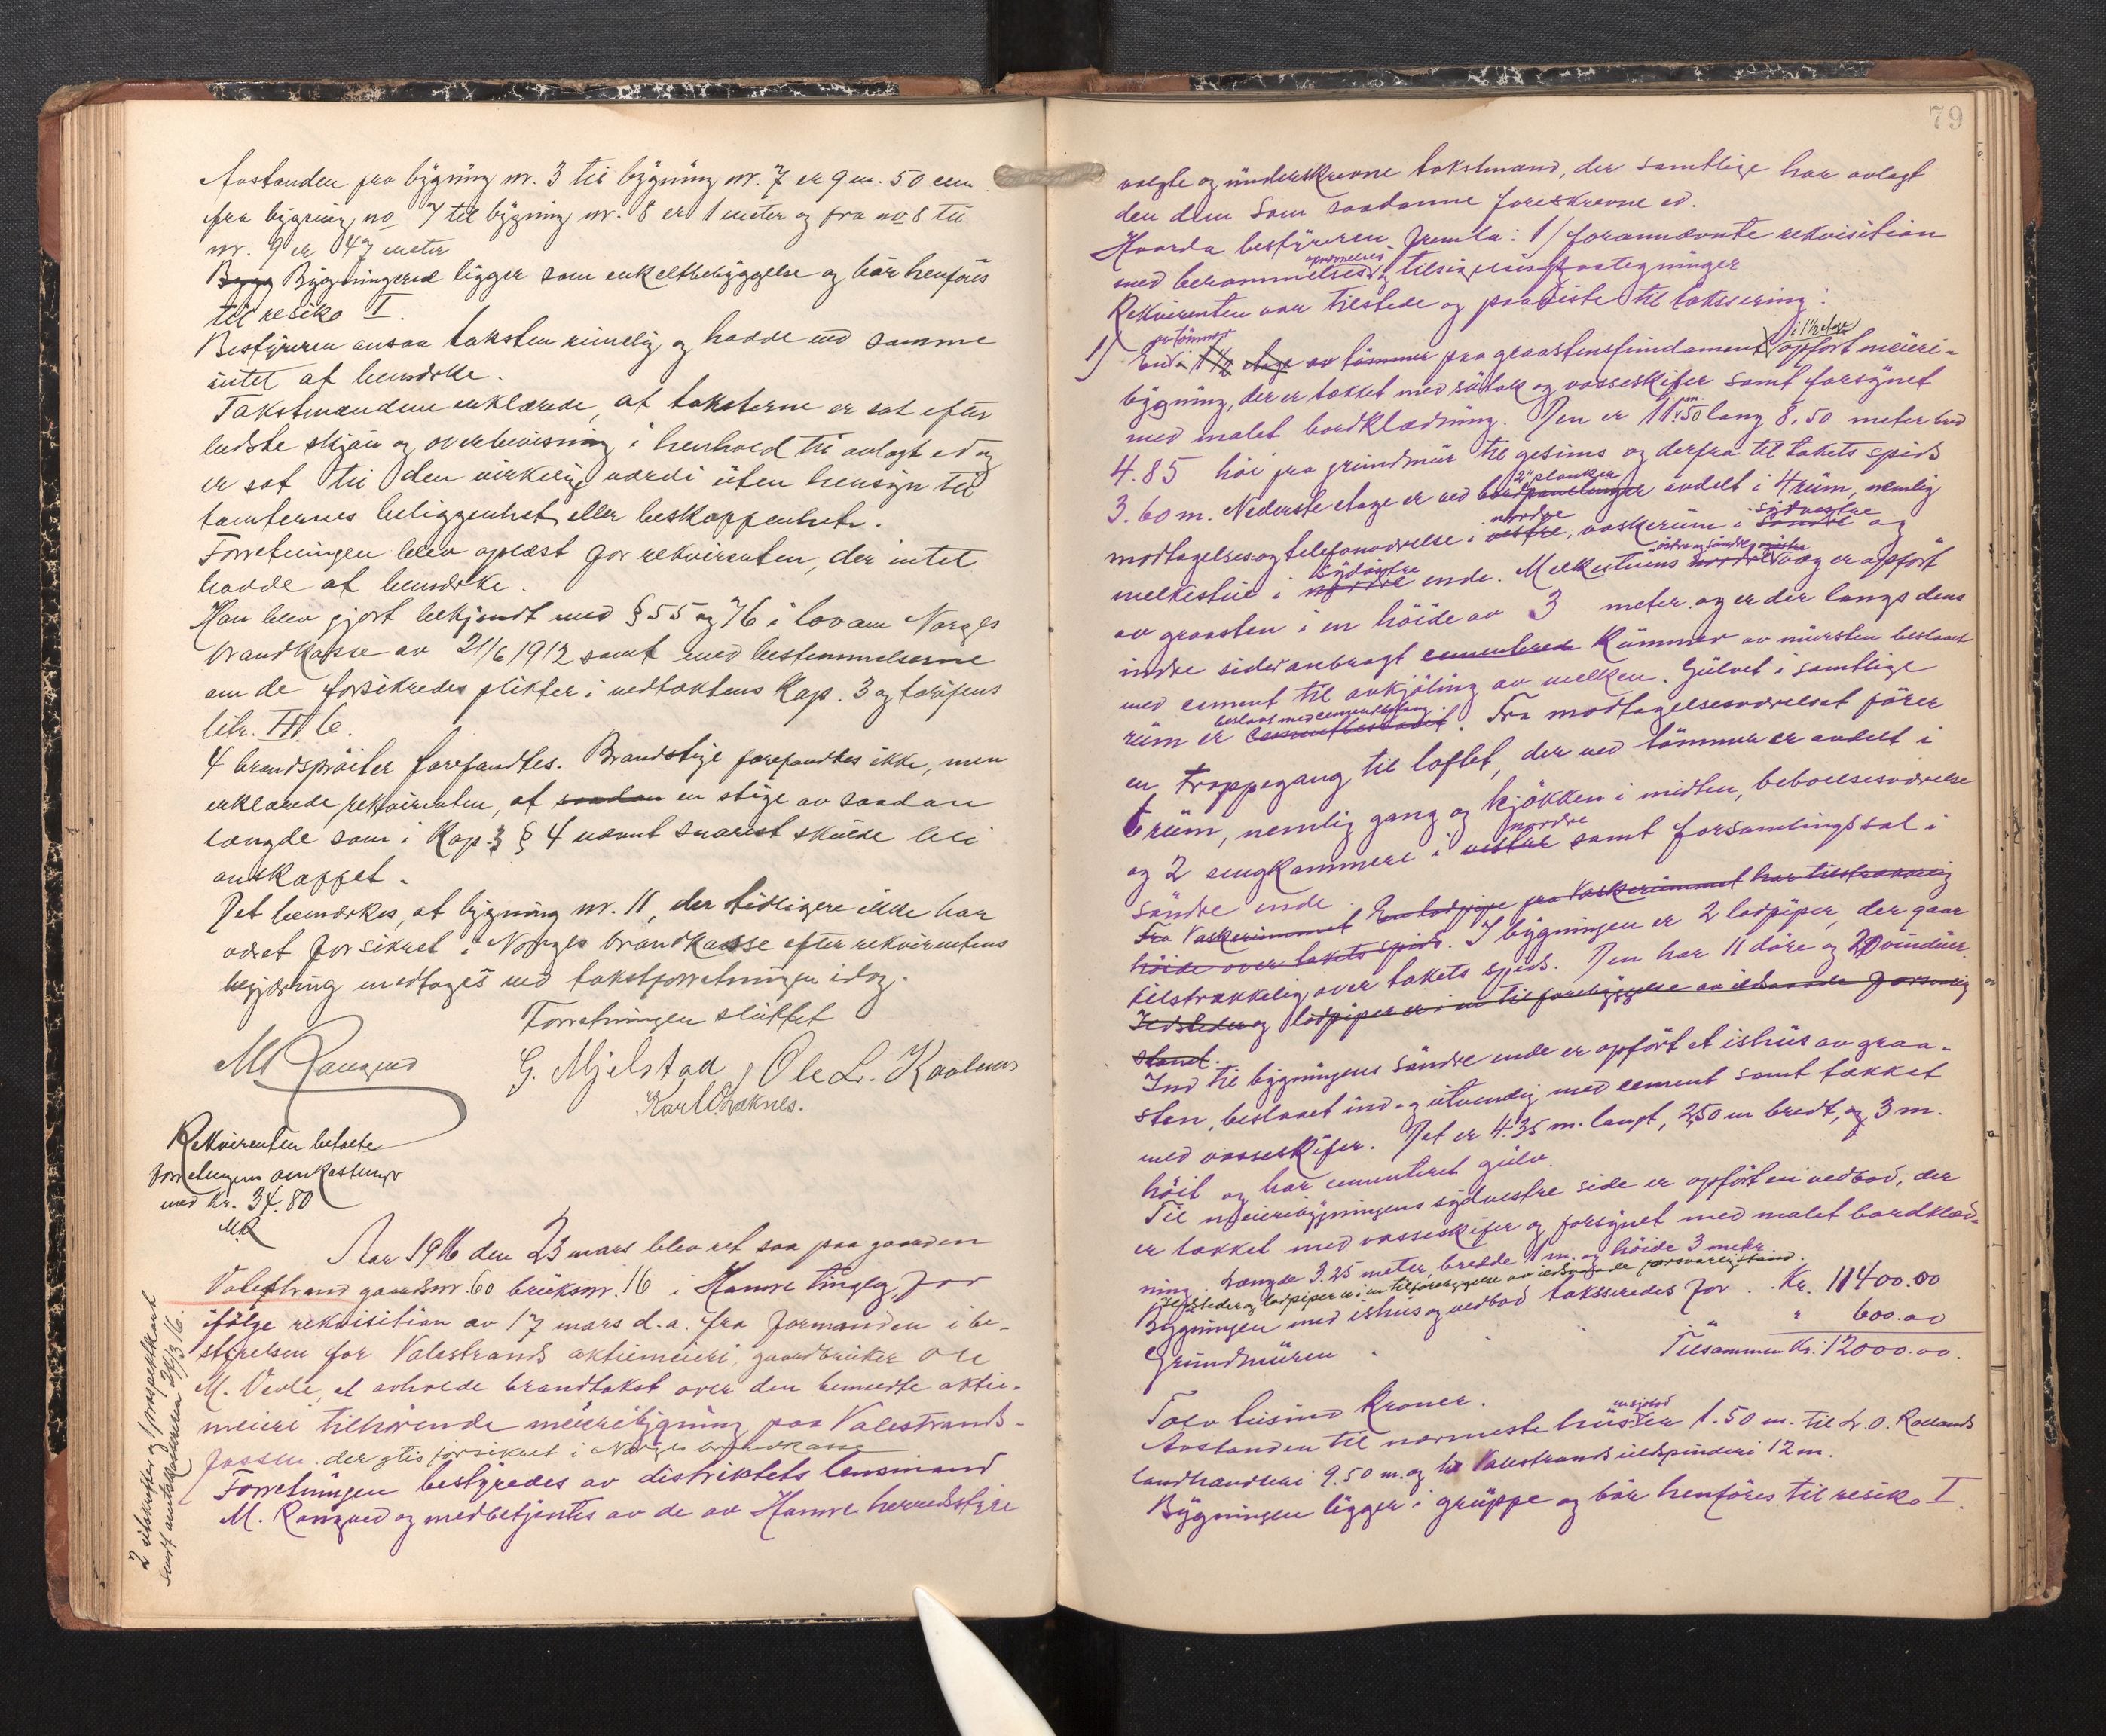 Avstanden fra bygning nr. 3 til bygning nr. 7 er 9 m. 50 cm.
fra bygning no 7 til bygning nr. 8 er 1 meter og fra no 8 til
nr. 9 er 47 meter
Bygg Bygningerne ligger som enkeltbebyggelse og bör henföres
til resiko I.
Bestyreren ansaa taksten rimelig og havde ved samme
intet at bemerke.
Takstmændene erklærede, at taksterne er sat efter
bedste skjön og overbevisning i henhold til avlagt ed og
er sat til den virkelige værdi uten hensyn til
tomternes beliggenhet eller beskaffenhet.
Forretningen blev oplæst for rekvirenten, der intet
havde at bemerke.
Han blev gjort bekjendt med § 55 og 76 i lov om Norges
brandkasse av 21/6 1912 samt med bestemmelserne
om de forsikredes plikter i vedtektens Kap. 3 og tarifens
litr. III C.
4 brandspröiter forefandtes. Brandstige forefandtes ikke, men
erklærede rekvirenten, at saadan en stige av saadan
længde som i Kap. 3 § 4 nævnt snarest skulde bli
anskaffet.
Det bemerkes, at bygning nr. 11, der tidligere ikke har
været forsikret i Norges brandkasse efter rekvirentens
begjæring medtages ved takstforretningen idag.
Forretningen sluttet
M Rongved G. Mjelstad, Ole L. Kaalaas
Karl O. Raknes.
Rekvirenten betalte
forretningens omkostninger
med Kr. 34.80
MR
Aar 1916 den 23 mars blev ret sat paa gaarden
Valestrand gaardsnr. 60 bruksnr. 16 i Hamre tinglag for
ifölge rekvisition av 17 mars d.a. fra formanden i be-
styrelsen for Valestrands aktiemeieri, gaardbruker Ole
M. Veole, at avholde brandtakst over den bemeldte aktie-
meieri tilhörende meieribygning paa Valestrands-
fossen. der ikke er forsikret i Norges brandkasse
Forretningen bestyredes av distriktets lensmand
M. Rongved og medbetjentes av de av Hamre herredsstyre
2 utskrifter og 1 forsatskart
sendt amtskontoret 28/3 16.
79
valgte og underskrevne takstmænd, der samtlige har avlagt
den dem som saadanne foreskrevne ed.
Hvorda bestyreren fremla: 1/ forannævnte rekvisition
opnævnelses
med berammelses og tilsigelsespaategninger
Rekvirenten var tilstede og paaviste til taksering:
av tömmer i 1½ etage
1) En i 1½ etage av tömmer paa graastensfundament opfört meieri-
bygning, der er tækket med sutak og vosseskifer samt forsynet
med malet bordklædning. Den er 11.50 m. lang 8,50 meter bred
4.85 höi fra grundmur til gesims og derfra til takets spids
2" planker
3.60 m. Nederste etage er ved bordpanelinger avdelt i 4 rum, nemlig
nordre sydvestre
modtagelses og telefonværelse i vestre, vaskerum i söndre og
sydöstre östre og söndre
melkestue i nordre ende. Melkestuens nordre væg er opfört
av graasten i en höide av 3 meter og er der langs dens
indre sider anbragt cementerede Kummer av mursten beslaaet
med cement til avkjöling av melken. Gulvet i samtlige
belagt med cementbelæg.
rum er cementbeslaaet. Fra modtagelsesværelset förer
en trappegang til loftet, der ved tömmer er avdelt i
6 rum, nemlig gang og kjökken i midten, beboelsesværelse
nordre
og 2 sengkammere i vestre samt forsamlingssal i
söndre ende.
Fra Vaskerummet En ladpipe fra Vaskerummet har tilstrækkelig
höide over takets spids. I bygningen er 2 ladpiper, der gaar
tilstrækkelig over takets spids. Den har 11 döre og 20 vinduer.
Ildsteder og ladpiper er i en til forebyggelse av ildsvaade forsvarlig
stand.
Ind til bygningens söndre ende er opfört et ishus av graa-
sten, beslaaet ind- og utvendig med cement samt tækket
med vosseskifer. Det er 4.35 m. langt, 2,50 m bredt, og 3 m.
höit og har cementeret gulv.
Til meieribygningens sydvestre side er opfört en vedbod, der
er tækket med vosseskifer og forsynet med malet bordklæd-
ning. Længde 3.25 meter, bredde 1 m. og höide 3 meter
Ildsteder og ladpiper er i en til forebyggelse av ildsvaade forsvarlig stand.
Bygningen med ishus og vedbod takseredes for . Kr. 11400.00
Grundmuren . " " 600.00
Tilsammen Kr. 12000.00.
Tolv tusind Kroner.
en sjöbod
Avstanden til nærmeste hus er 1.50 m. til L. O. Rollands
landhandleri 9.50 m. og til Valestrands uldspinderi 12 m.
Bygningen ligger i gruppe og bör henföres til resiko I.